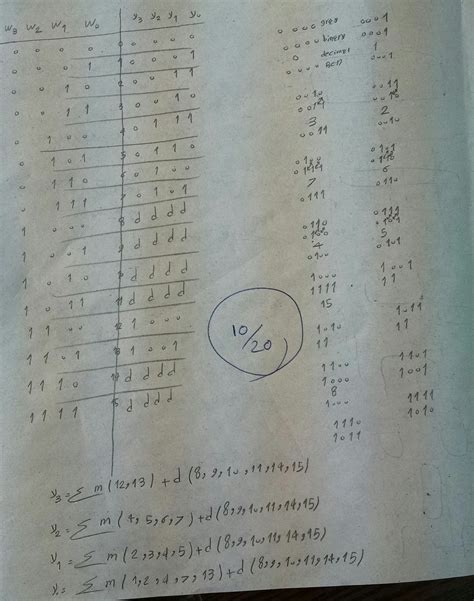 W3 W2 W1 W0 y3 y2 y1 y0
0 0 0 0 0 0 0 0 0
0 0 0 1 1 0 0 0 1
0 0 1 0 2 0 0 1 1
0 0 1 1 3 0 0 1 0
0 1 0 0 4 0 1 1 1
0 1 0 1 5 0 1 1 0
0 1 1 0 6 0 1 0 0
0 1 1 1 7 0 1 0 1
1 0 0 0 8 d d d d
1 0 0 1 9 d d d d
1 0 1 0 10 d d d d
1 0 1 1 11 d d d d
1 1 0 0 12 1 0 0 0
1 1 0 1 13 1 0 0 1
1 1 1 0 14 d d d d
1 1 1 1 15 d d d d
0000 gray 0001
0000 binary 0001
0 decimal 1
0000 BCD 0001
0010 0011
3 2
0011 0010
0100 0101
7 6
0111 0110
0110 0111
0100
4 5
0100 0101
1000 1001
1111 11
15
1010 1011
11 11
1100 1101
1000 1001
8
1000
1110 1111
1011 1010
10/20
y3 = Σ m(12,13) + d(8,9,10,11,14,15)
y2 = Σ m(4,5,6,7) + d(8,9,10,11,14,15)
y1 = Σ m(2,3,4,5) + d(8,9,10,11,14,15)
y0 = Σ m(1,2,4,7,13) + d(8,9,10,11,14,15)